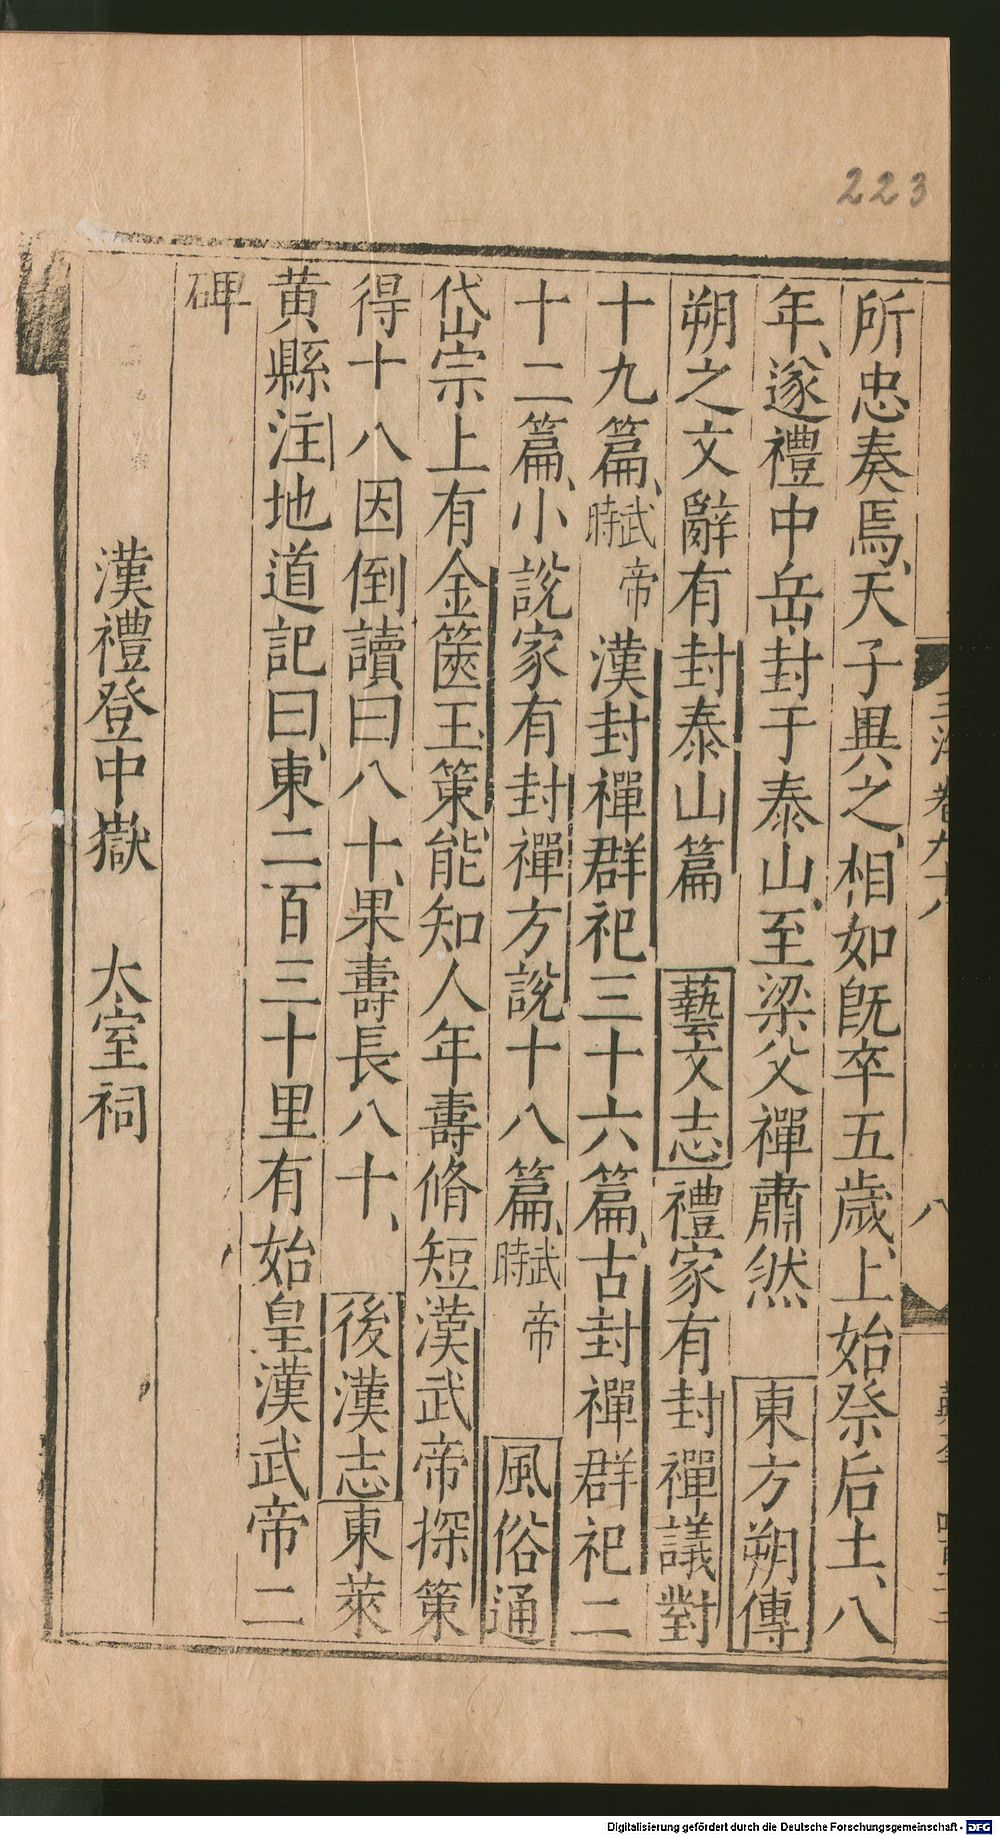 223
所忠奏焉、天子異之、相如既卒五歲、上始祭后土、八
年、遂禮中岳、封于泰山、至梁父禪肅然　東方朔傳
朔之文辭有封泰山篇　藝文志禮家有封禪議對
十九篇、武帝時　漢封禪群祀三十六篇、古封禪群祀二
十二篇、小說家有封禪方說十八篇、武帝時　風俗通
岱宗上有金篋玉策、能知人年壽脩短漢武帝探策
得十八因倒讀曰八十、果壽長八十、　後漢志東萊
黃縣注地道記曰、東二百三十里有始皇漢武帝二
碑
漢禮登中嶽　太室祠
卷九十八
八
Digitalisierung gefördert durch die Deutsche Forschungsgemeinschaft - DFG